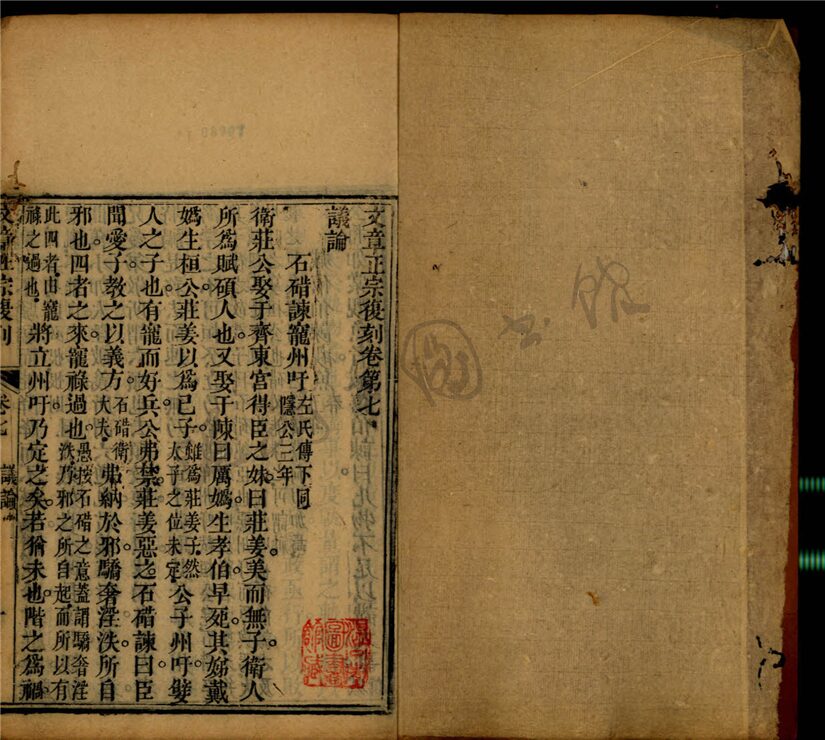 文章正宗復刻卷第七
議論
石碏諫寵州吁左氏傳下同隱公三年
衛莊公娶于齊東宮得臣之妹曰莊姜美而無子衛人
所爲賦碩人也又娶于陳曰厲嬀生孝伯早死其娣戴
嬀生桓公莊姜以爲己子雖爲莊姜子然太子之位未定公子州吁嬖
人之子也有寵而好兵公弗禁莊姜惡之石碏諫曰臣
聞愛子教之以義方石碏衛大夫弗納於邪驕奢淫泆所自
邪也四者之來寵祿過也愚按石碏之意蓋謂驕奢淫泆乃邪之所自起而所以有
此四者由寵祿之過也將立州吁乃定之矣若猶未也階之爲禍
文章正宗復刻
卷七
議論